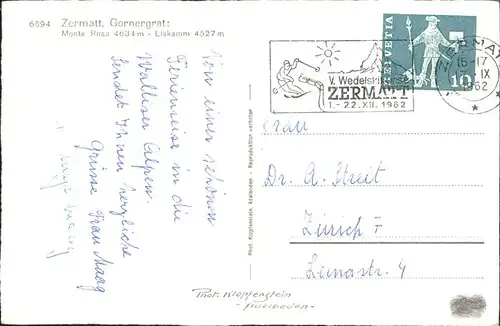 6894 Zermatt, Gornergrat:
Monte Rosa 4634 m - Liskamm 4527 m
Von einer schönen
Ferienreise in die
Walliser Alpen
sendet Ihnen herzliche
Grüsse Frau Maag
V. Wedelskikurse
ZERMATT
1.- 22.XII. 1962
HELVETIA
10
ZERMATT
15-17
IX
1962
Phot. Klopfenstein, Adelboden - Reproduktion verboten
Frau
Dr. A. Streit
Zürich 7
Lunastr. 4
Phot. Klopfenstein
- Adelboden -